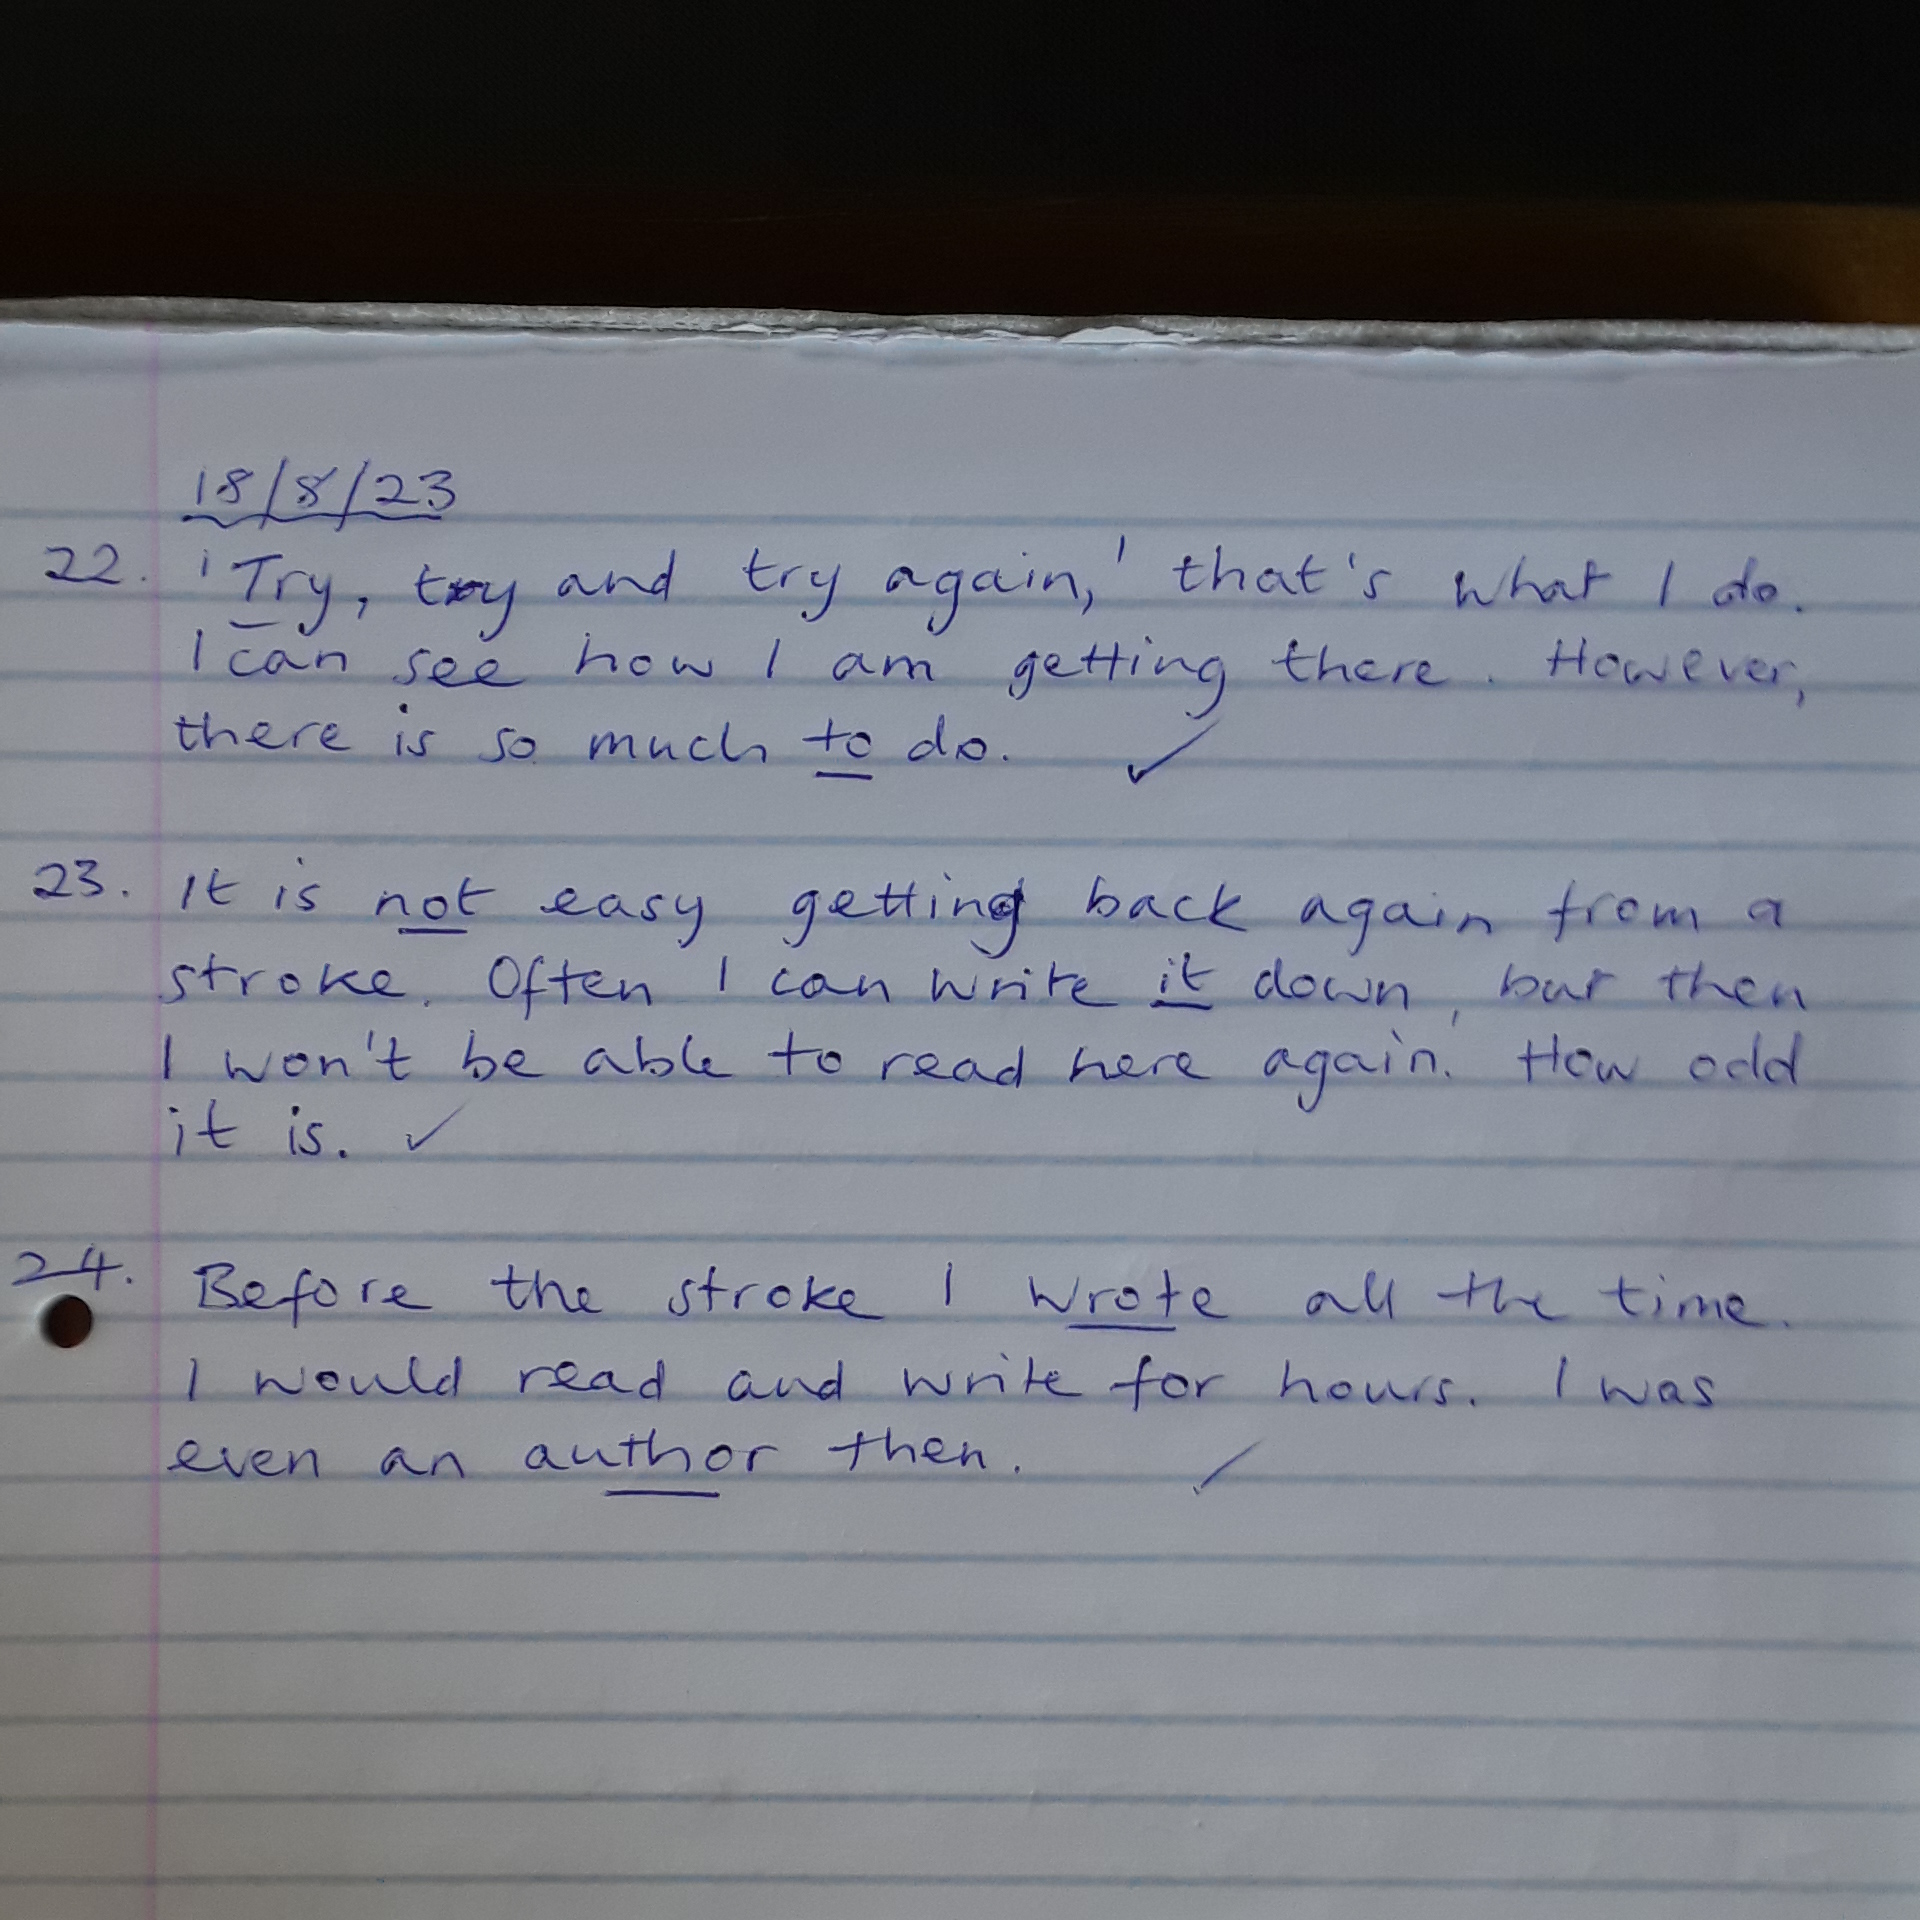 18/8/23
22. 'Try, try and try again,' that's what I do.
I can see how I am getting there. However,
there is so much to do. ✓
23. It is not easy getting back again from a
stroke. Often I can write it down, but then
I won't be able to read here again. How odd
it is. ✓
24. Before the stroke I wrote all the time.
I would read and write for hours. I was
even an author then.